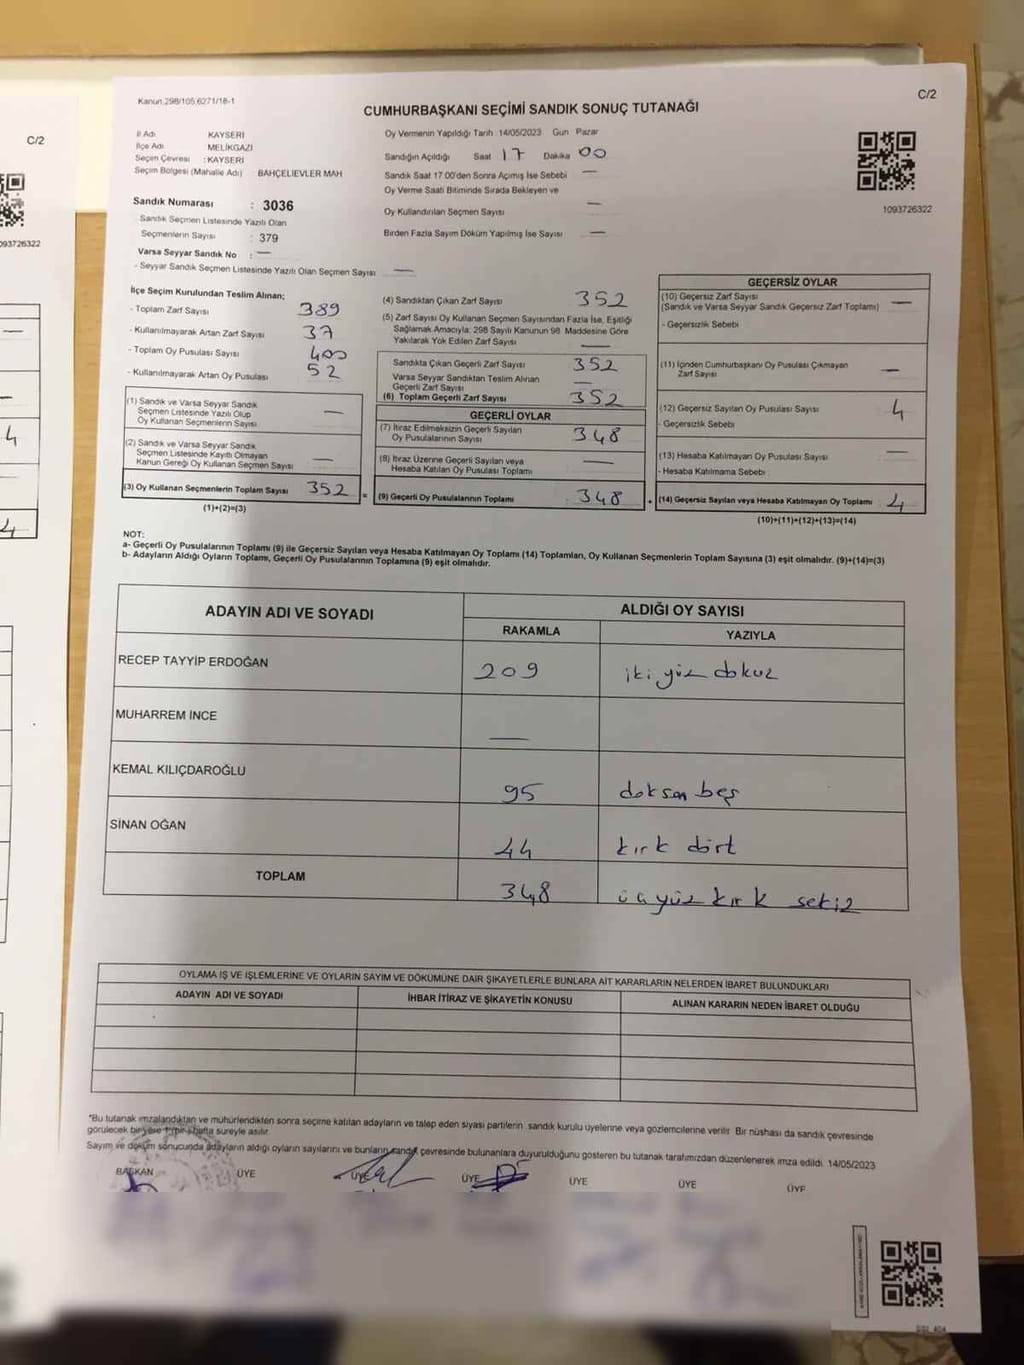 Kanun 298/105.6271/18-1
C/2
CUMHURBAŞKANI SEÇİMİ SANDIK SONUÇ TUTANAĞI
İl Adı KAYSERİ
İlçe Adı MELİKGAZİ
Seçim Çevresi : KAYSERİ
Seçim Bölgesi (Mahalle Adı) BAHÇELİEVLER MAH
Sandık Numarası : 3036
Sandık Seçmen Listesinde Yazılı Olan
Seçmenlerin Sayısı : 379
Varsa Seyyar Sandık No : —
- Seyyar Sandık Seçmen Listesinde Yazılı Olan Seçmen Sayısı —
Oy Vermenin Yapıldığı Tarih 14/05/2023 Gün Pazar
Sandığın Açıldığı Saat 17 Dakika 00
Sandık Saat 17 00'den Sonra Açımış İse Sebebi —
Oy Verme Saati Bitiminde Sırada Bekleyen ve
Oy Kullandırılan Seçmen Sayısı —
Birden Fazla Sayım Döküm Yapılmış İse Sayısı —
1093726322
İlçe Seçim Kurulundan Teslim Alınan;
- Toplam Zarf Sayısı 389
- Kullanılmayarak Artan Zarf Sayısı 37
- Toplam Oy Pusulası Sayısı 400
- Kullanılmayarak Artan Oy Pusulası 52
(1) Sandık ve Varsa Seyyar Sandık
Seçmen Listesinde Yazılı Olup
Oy Kullanan Seçmenlerin Sayısı —
(2) Sandık ve Varsa Seyyar Sandık
Seçmen Listesinde Kayıtlı Olmayan
Kanun Gereği Oy Kullanan Seçmen Sayısı —
(3) Oy Kullanan Seçmenlerin Toplam Sayısı 352
(1)+(2)=(3)
(4) Sandıktan Çıkan Zarf Sayısı 352
(5) Zarf Sayısı Oy Kullanan Seçmen Sayısından Fazla İse, Eşitliği
Sağlamak Amacıyla; 298 Sayılı Kanunun 98 Maddesine Göre
Yakılarak Yok Edilen Zarf Sayısı —
Sandıkta Çıkan Geçerli Zarf Sayısı 352
Varsa Seyyar Sandıktan Teslim Alınan
Geçerli Zarf Sayısı —
(6) Toplam Geçerli Zarf Sayısı 352
GEÇERLİ OYLAR
(7) İtiraz Edilmeksizin Geçerli Sayılan
Oy Pusulalarının Sayısı 348
(8) İtiraz Üzerine Geçerli Sayılan veya
Hesaba Katılan Oy Pusulası Toplamı —
= (9) Geçerli Oy Pusulalarının Toplamı 348
GEÇERSİZ OYLAR
(10) Geçersiz Zarf Sayısı
(Sandık ve Varsa Seyyar Sandık Geçersiz Zarf Toplamı) —
- Geçersizlik Sebebi
(11) İçinden Cumhurbaşkanı Oy Pusulası Çıkmayan
Zarf Sayısı —
(12) Geçersiz Sayılan Oy Pusulası Sayısı 4
- Geçersizlik Sebebi
(13) Hesaba Katılmayan Oy Pusulası Sayısı —
- Hesaba Katılmama Sebebi
+ (14) Geçersiz Sayılan veya Hesaba Katılmayan Oy Toplamı 4
(10)+(11)+(12)+(13)=(14)
NOT:
a- Geçerli Oy Pusulalarının Toplamı (9) ile Geçersiz Sayılan veya Hesaba Katılmayan Oy Toplamı (14) Toplamları, Oy Kullanan Seçmenlerin Toplam Sayısına (3) eşit olmalıdır. (9)+(14)=(3)
b- Adayların Aldığı Oyların Toplamı, Geçerli Oy Pusulalarının Toplamına (9) eşit olmalıdır.
ADAYIN ADI VE SOYADI
ALDIĞI OY SAYISI
RAKAMLA YAZIYLA
RECEP TAYYİP ERDOĞAN 209 iki yüz dokuz
MUHARREM İNCE —
KEMAL KILIÇDAROĞLU 95 doksan beş
SİNAN OĞAN 44 kırk dört
TOPLAM 348 üçyüz kırk sekiz
OYLAMA İŞ VE İŞLEMLERİNE VE OYLARIN SAYIM VE DÖKÜMÜNE DAİR ŞİKAYETLERLE BUNLARA AİT KARARLARIN NELERDEN İBARET BULUNDUKLARI
ADAYIN ADI VE SOYADI İHBAR İTİRAZ VE ŞİKAYETİN KONUSU ALINAN KARARIN NEDEN İBARET OLDUĞU
*Bu tutanak imzalandıktan ve mühürlendikten sonra seçime katılan adayların ve talep eden siyasi partilerin sandık kurulu üyelerine veya gözlemcilerine verilir Bir nüshası da sandık çevresinde
görülecek bir yere 1 (bir) hafta süreyle asılır.
Sayım ve döküm sonucunda adayların aldığı oyların sayılarını ve bunların sandık çevresinde bulunanlara duyurulduğunu gösteren bu tutanak tarafımızdan düzenlenerek imza edildi 14/05/2023
BAŞKAN ÜYE ÜYE ÜYE ÜYE ÜYE ÜYE
C/2
093726322
4
4